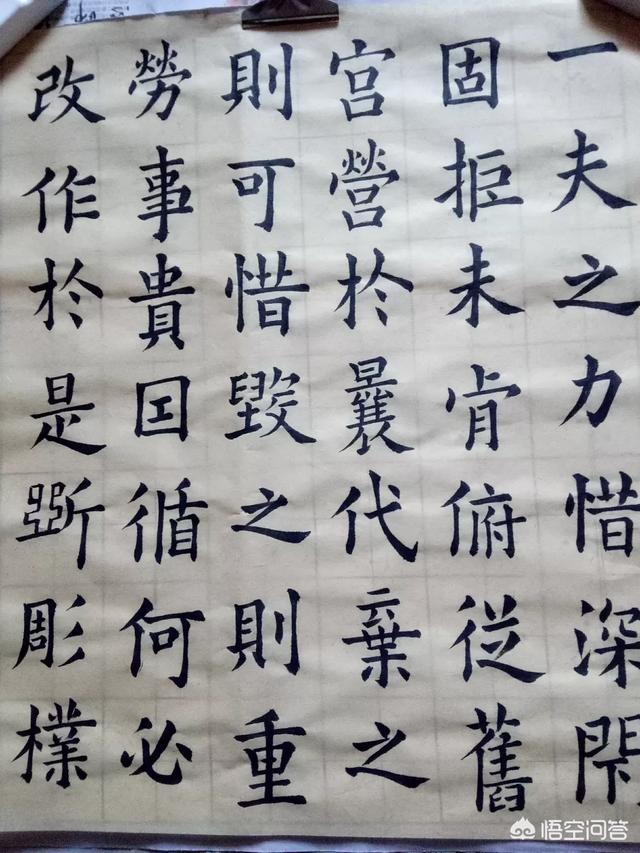 一夫之力惜深閇
固拒未肯俯從舊
宮營於曩代棄之
則可惜毀之則重
勞事貴囙循何必
改作於是斲彫樸
悟空问答